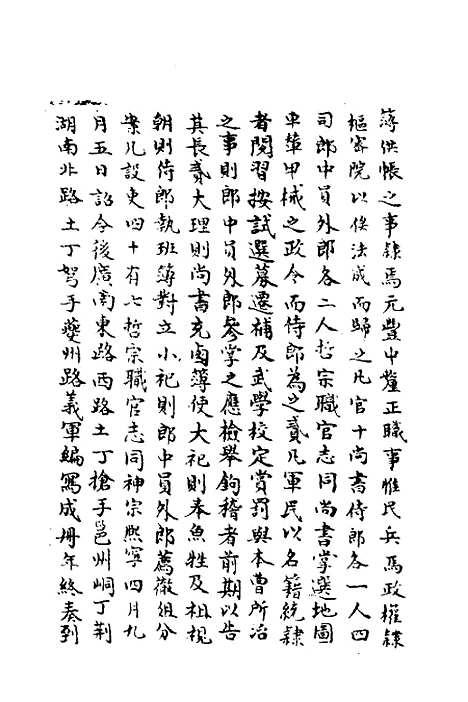 簿供帳之事隸焉元豐中釐正職事惟民兵馬政權隸
樞密院以俟法成而歸之凡官十尚書侍郎各一人四
司郎中員外郎各二人哲宗職官志同尚書掌選地圖
車輦甲械之政令而侍郎為之貳凡軍民以名籍統隸
者閱習按試選募遷補及武學校定賞罰與本曹所治
之事則郎中員外郎參掌之應檢舉鉤稽者前期以告
其長貳大理則尚書充鹵簿使大祀則奉魚牲及俎視
朝則侍郎執班簿對立小祀則郎中員外郎薦徹俎分
案九設吏四十有七哲宗職官志同神宗熙寧四月九
月五日詔今後廣南東路西路土丁槍手邕州峒丁荆
湖南北路土丁弩手夔州路義軍編寫成冊年終奏到